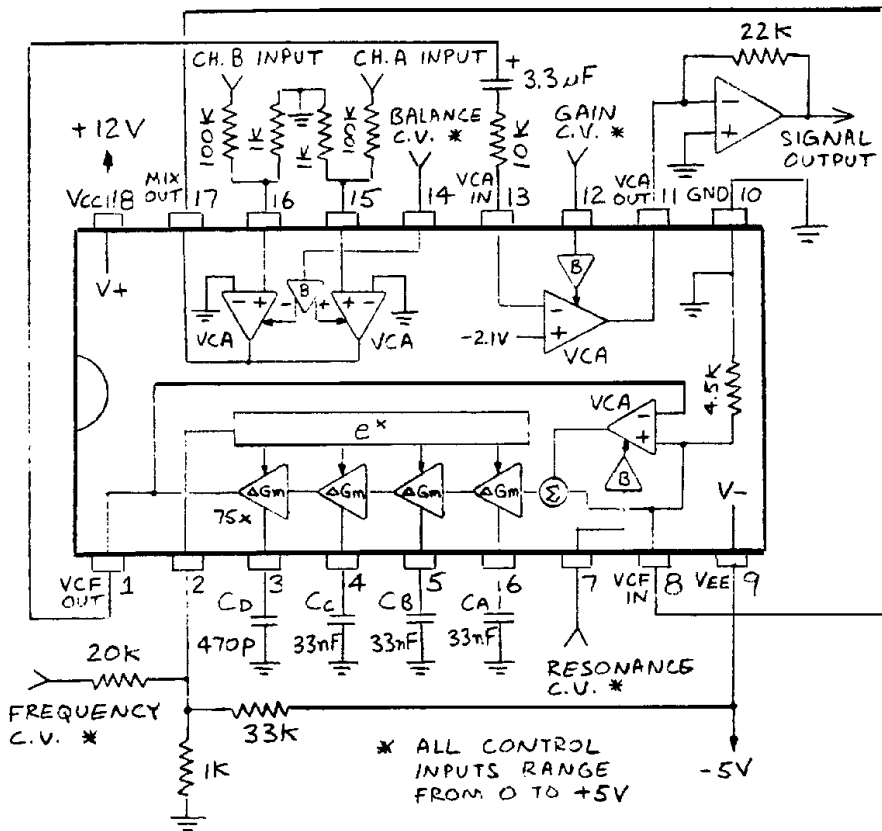 22K
CH. B INPUT
CH. A INPUT
+
3.3µF
100K
1K
1K
100K
BALANCE
C.V. *
10K
GAIN
C.V. *
-
+
SIGNAL
OUTPUT
+12V
VCC 18
MIX
OUT 17
16
15
14
VCA
IN 13
12
VCA
OUT 11
GND 10
V+
- +
- B +
+ -
VCA
VCA
B
-
+
-2.1V
VCA
4.5K
VCA
-
+
B
e^x
ΔGm
ΔGm
ΔGm
ΔGm
Σ
75x
V-
VCF
OUT 1
2
3
4
5
6
7
VCF
IN 8
VEE 9
CD
CC
CB
CA
470P
33nF
33nF
33nF
RESONANCE
C.V. *
20K
FREQUENCY
C.V. *
33K
1K
* ALL CONTROL
INPUTS RANGE
FROM 0 TO +5V
-5V